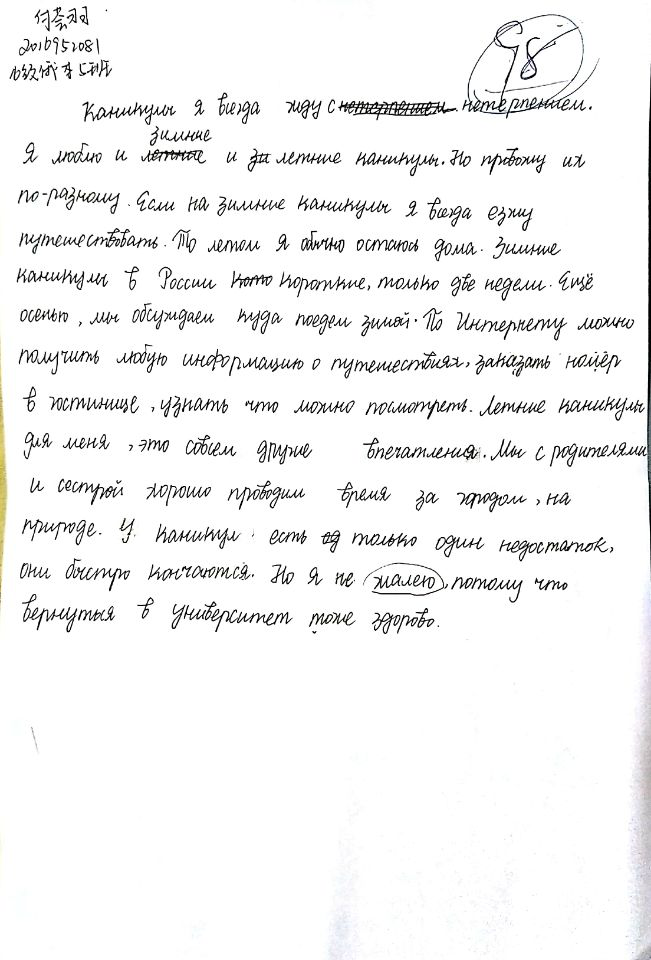 付荟羽
2016952081
16级俄本5班
98
Каникулы я всегда жду с нетерпением.
зимние
Я люблю и и летние каникулы. Но провожу их
по-разному. Если на зимние каникулы я всегда езжу
путешествовать. То летом я обычно остаюсь дома. Зимние
каникулы в России короткие, только две недели. Ещё
осенью, мы обсуждаем куда поедем зимой. По Интернету можно
получить любую информацию о путешествиях, заказать номер
в гостинице, узнать что можно посмотреть. Летние каникулы
для меня, это совсем другие впечатления. Мы с родителями
и сестрой хорошо проводим время за городом, на
природе. У каникул есть только один недостаток,
они быстро кончаются. Но я не жалею, потому что
вернуться в университет тоже здорово.